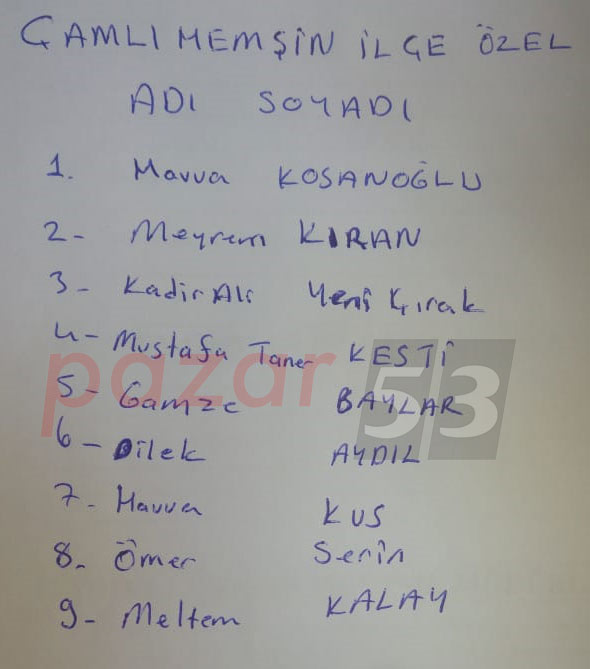 ÇAMLIHEMŞİN İLÇE ÖZEL
ADI SOYADI
1. Havva KOSANOĞLU
2- Meyrem KIRAN
3- Kadir Ali Yeni Çırak
4- Mustafa Taner KESTİ
5- Gamze BAYLAR
6- Dilek AYDIL
7- Havva KUS
8- Ömer Serin
9- Meltem KALAY
pazar 53